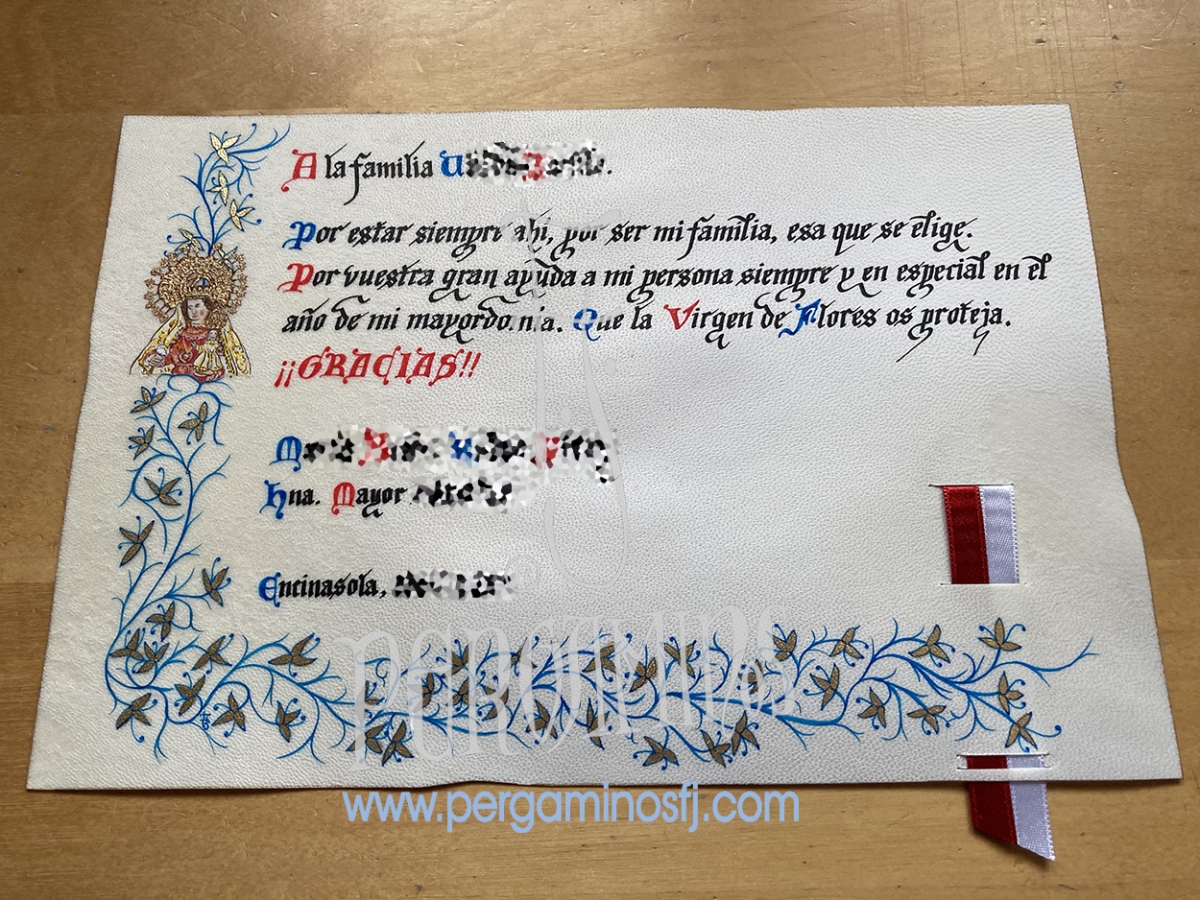 A la familia
Por estar siempre ahí, por ser mi familia, esa que se elige.
Por vuestra gran ayuda a mi persona siempre y en especial en el
año de mi mayordomía. Que la Virgen de Flores os proteja.
¡¡GRACIAS!!
Hna. Mayor
Encinasola,
PERGAMINOS
www.pergaminosfj.com